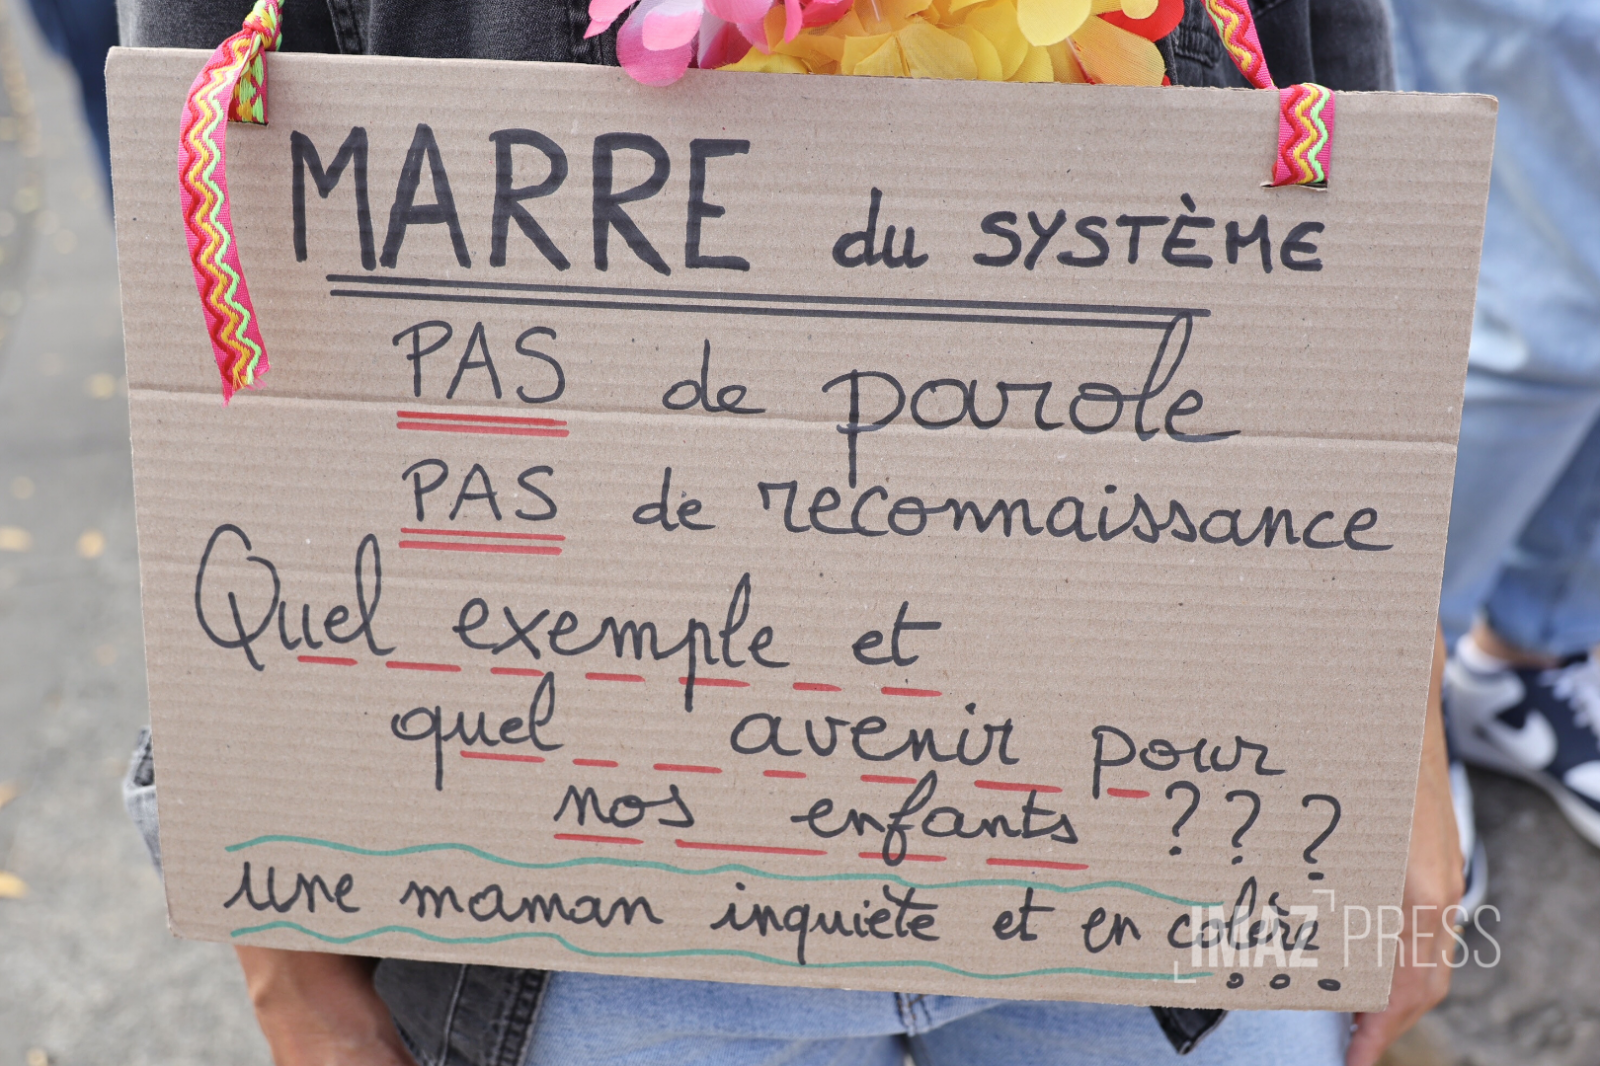 MARRE du SYSTÈME
PAS de parole
PAS de reconnaissance
Quel exemple et
quel avenir pour
nos enfants ???
Une maman inquiète et en colère
...
IMAZ PRESS